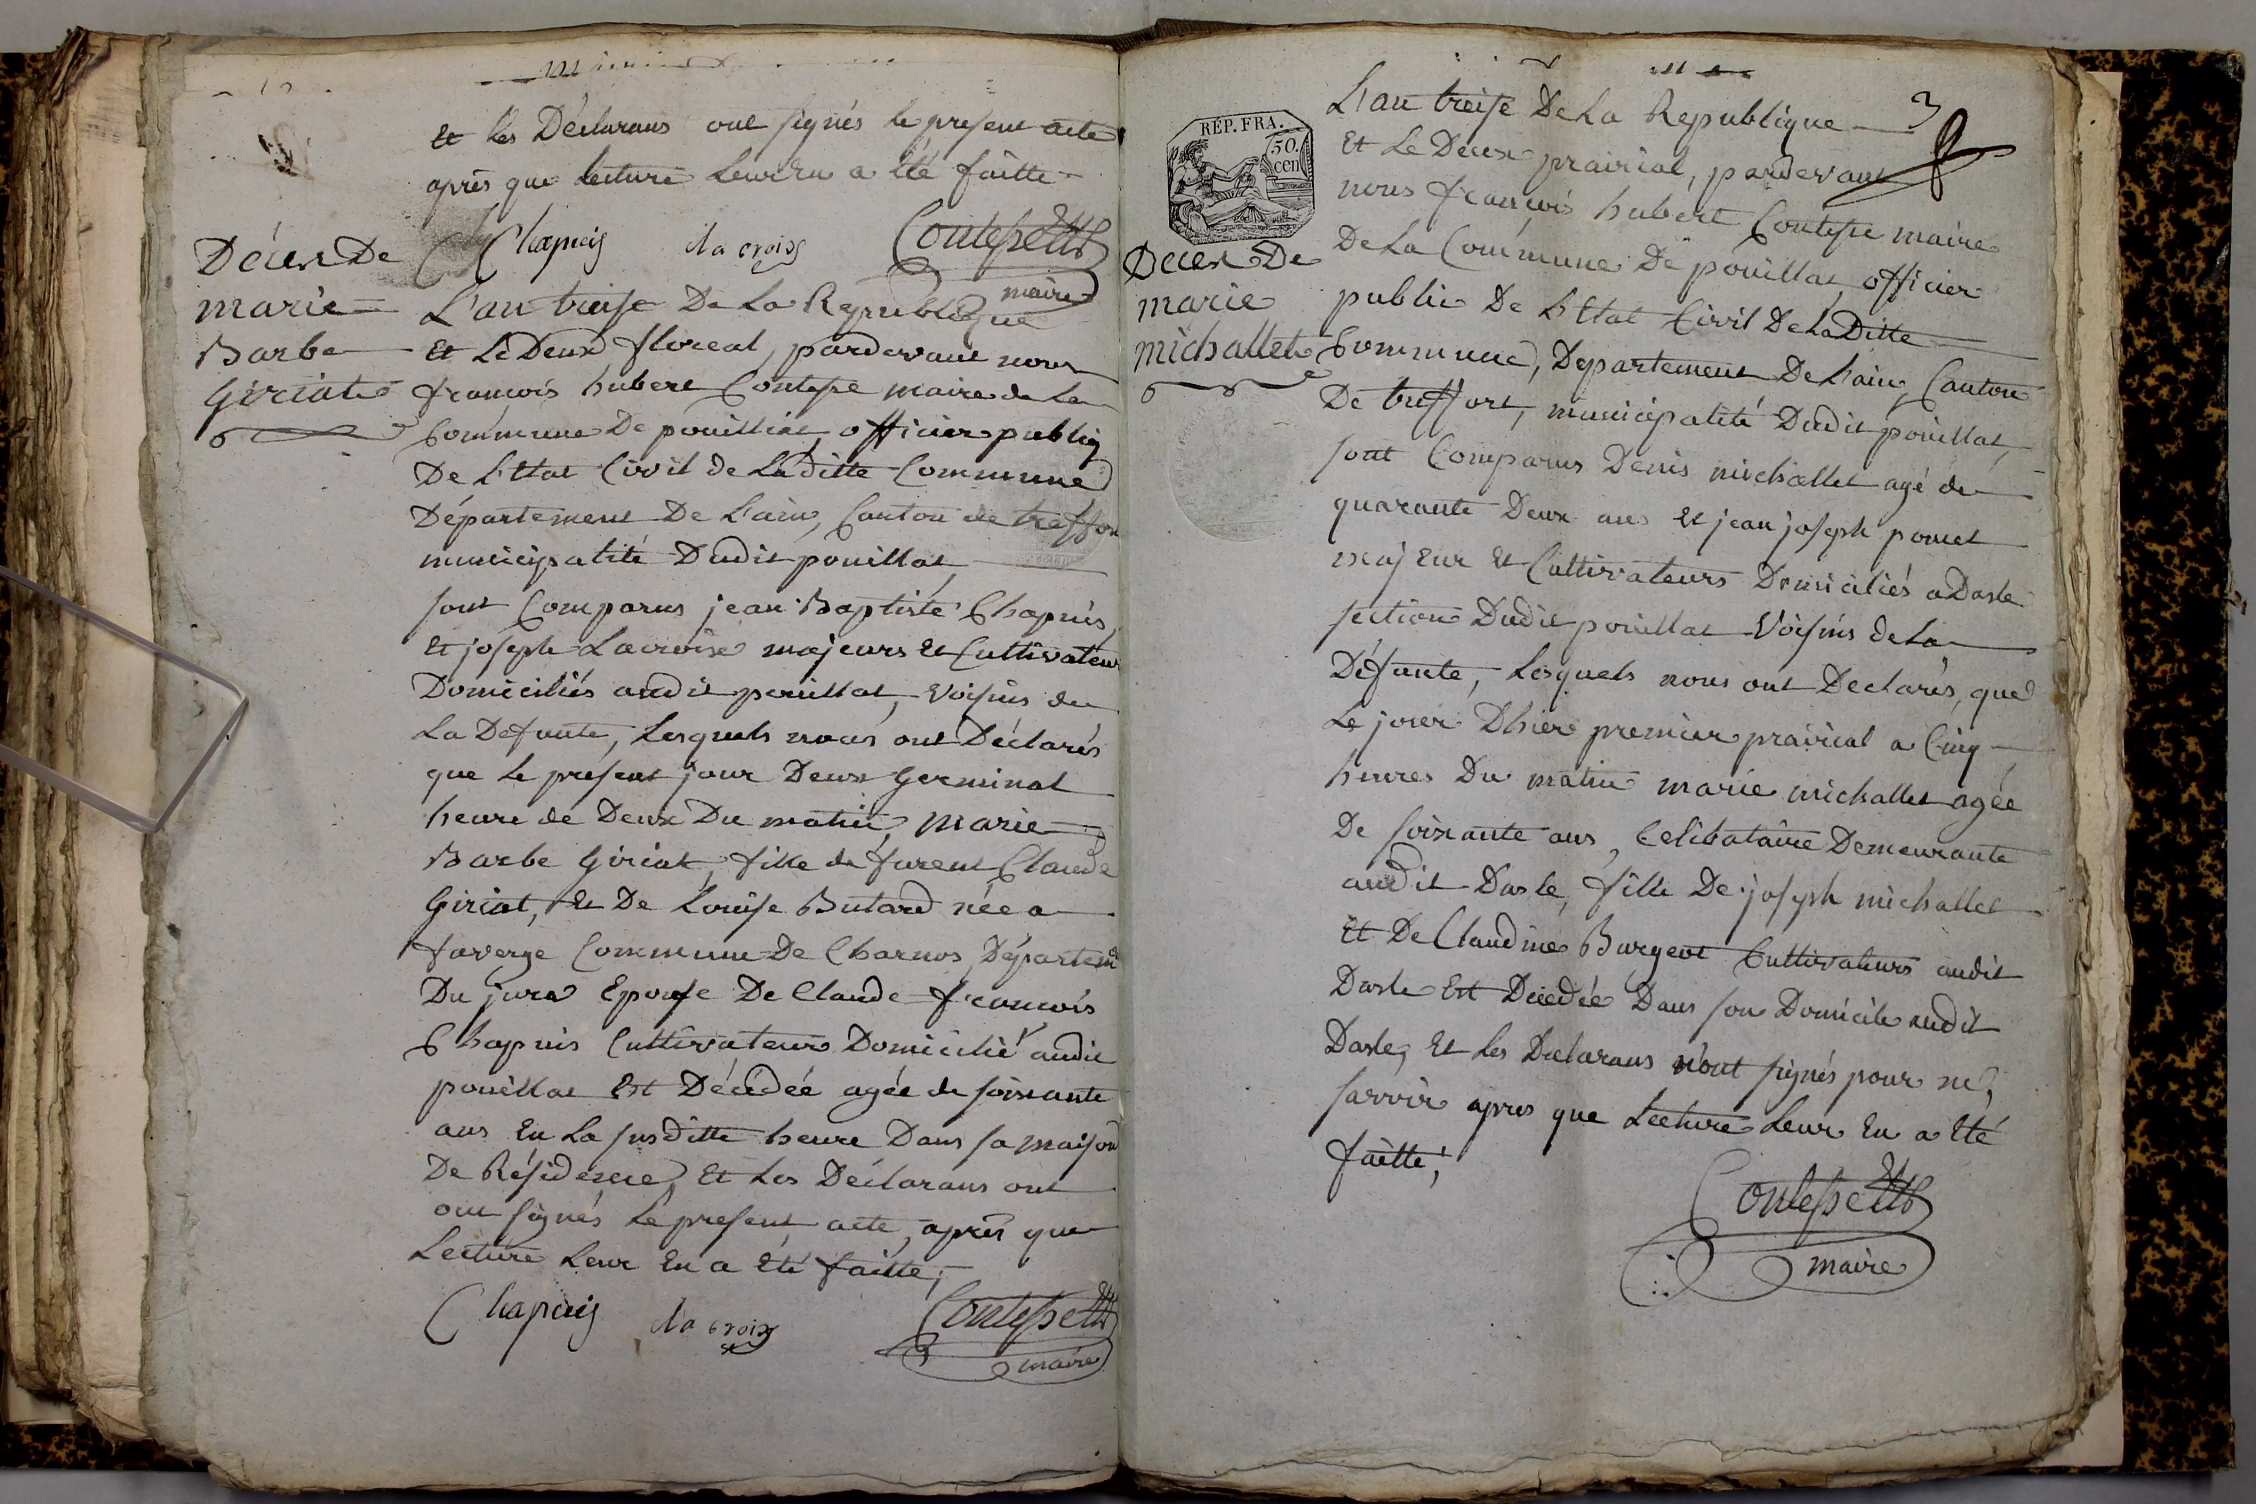 et les Déclarans ont signés le present acte
après que lecture leur en a été faitte
Chapuis la croix Contesse
maire
Décex De
marie
Barbe
Giriat
L'an treise De La Republique
et Le Deux floreal, pardevant nous
françois hubert Contesse maire de La
Commune De pouillat, officier public
De L'Etat Civil de La ditte Commune
Département De L'ain, Canton de treffort
municipalité Dudit pouillat,
sont Comparus jean Baptiste Chapuis
et joseph Lacroise majeurs et Cultivateurs
Domiciliés audit pouillat, voisins de
La Defunte, Lesquels nous ont Déclarés
que le présent jour Deux Germinal
heure de Deux Du matin, marie
Barbe Giriat, fille de furent Claude
Giriat, et De Louise Butard née a
faverge Commune De Charnos Départem
Du jura Epouse De Claude francois
Chapuis Cultivateur Domicilié audit
pouillat est Décédée agée de soixante
ans en La susditte heure Dans sa maison
De Résidence, et Les Déclarans ont
ont signés Le present acte, après que
Lecture Leur en a été faitte,
Chapuis la croix Contesse
maire
3
RÉP. FRA.
50.
cen
Decex De
marie
michallet
L'an treise De La Republique
et Le Deux prairial, pardevant
nous francois hubert Contesse maire
De La Commune De pouillat, officier
public De L'Etat Civil De La Ditte
Commune, Departement De L'ain, Canton
De treffort, municipalité Dudit pouillat,
sont Comparus Denis michallet agé de
quarante Deux ans et jean joseph poncet
majeur et Cultivateurs Domiciliés a Dasle
section Dudit pouillat voisins de La
Défunte, Lesquels nous ont Declarés, que
Le jour D'hier premier prairial a Cinq
heures Du matin marie michallet agée
De soixante ans, Celibataire Demeurante
audit Dasle, fille De joseph michallet
et De Claudine Burgeot Cultivateurs audit
Dasle est Decedée Dans son Domicile audit
Dasle, et Les Declarans n'ont signés pour ne
savoir apres que Lecture Leur en a été
faitte,
Contesse
maire